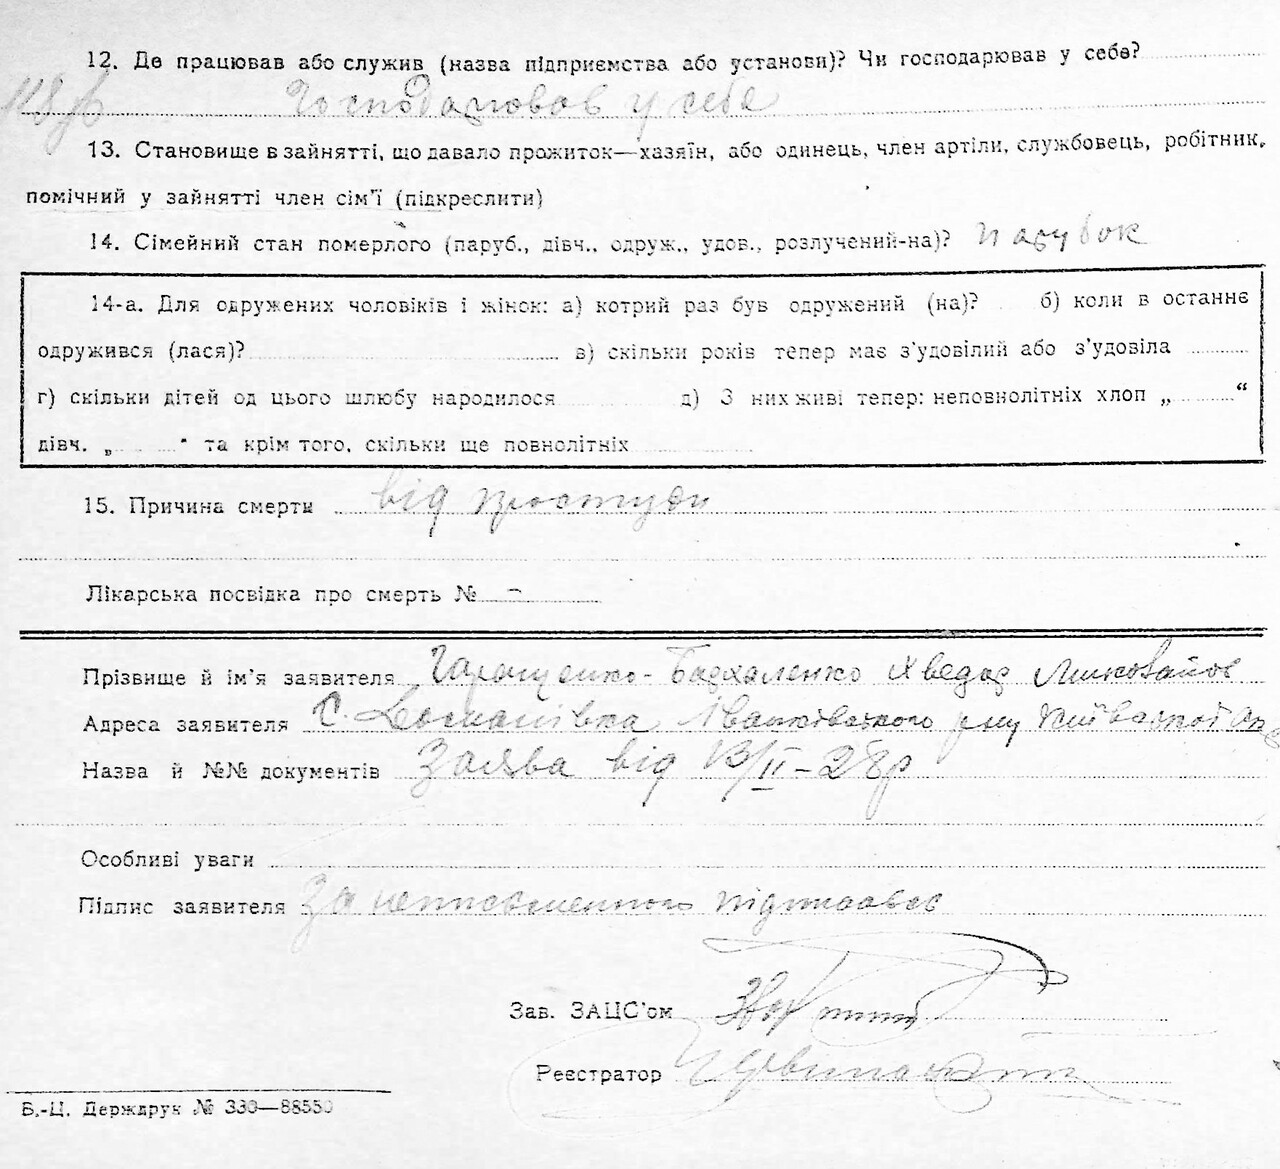 12. Де працював або служив (назва підприємства або установи)? Чи господарював у себе?
Господарював у себе
13. Становище в зайнятті, що давало прожиток—хазяїн, або одинець, член артіли, службовець, робітник,
помічний у зайнятті член сім'ї (підкреслити)
14. Сімейний стан померлого (паруб., дівч., одруж., удов., розлучений-на)? парубок
14-а. Для одружених чоловіків і жінок: а) котрий раз був одружений (на)? б) коли в останнє
одружився (лася)? в) скільки років тепер має з'удовілий або з'удовіла
г) скільки дітей од цього шлюбу народилося д) З них живі тепер: неповнолітніх хлоп „ “
дівч. „ “ та крім того, скільки ще повнолітніх
15. Причина смерти від простуди
Лікарська посвідка про смерть № -
Прізвище й ім'я заявителя Хведор
Адреса заявителя С. Іванківського р-ну Київської Окр
Назва й №№ документів Заява від 13/II-28р
Особливі уваги
Підпис заявителя За неписьменного підписався
Зав. ЗАЦС'ом
Реєстратор
Б.-Ц. Держдрук № 330—88550